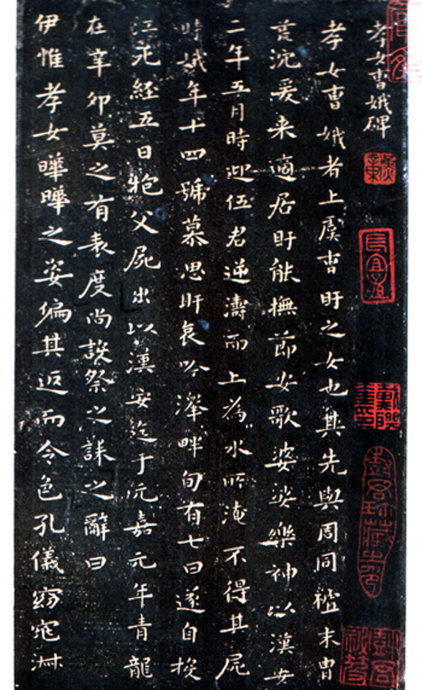 孝女曹娥碑
孝女曹娥者上虞曹盱之女也其先與周同祖末胄
荒沉爰来適居盱能撫節安歌婆娑樂神以漢安
二年五月時迎伍君逆濤而上為水所淹不得其屍
時娥年十四號慕思盱哀吟澤畔旬有七日遂自投
江死經五日抱父屍出以漢安迄于元嘉元年青龍
在辛卯莫之有表度尚設祭之誄之辭曰
伊惟孝女曄曄之姿偏其返而令色孔儀窈窕淑